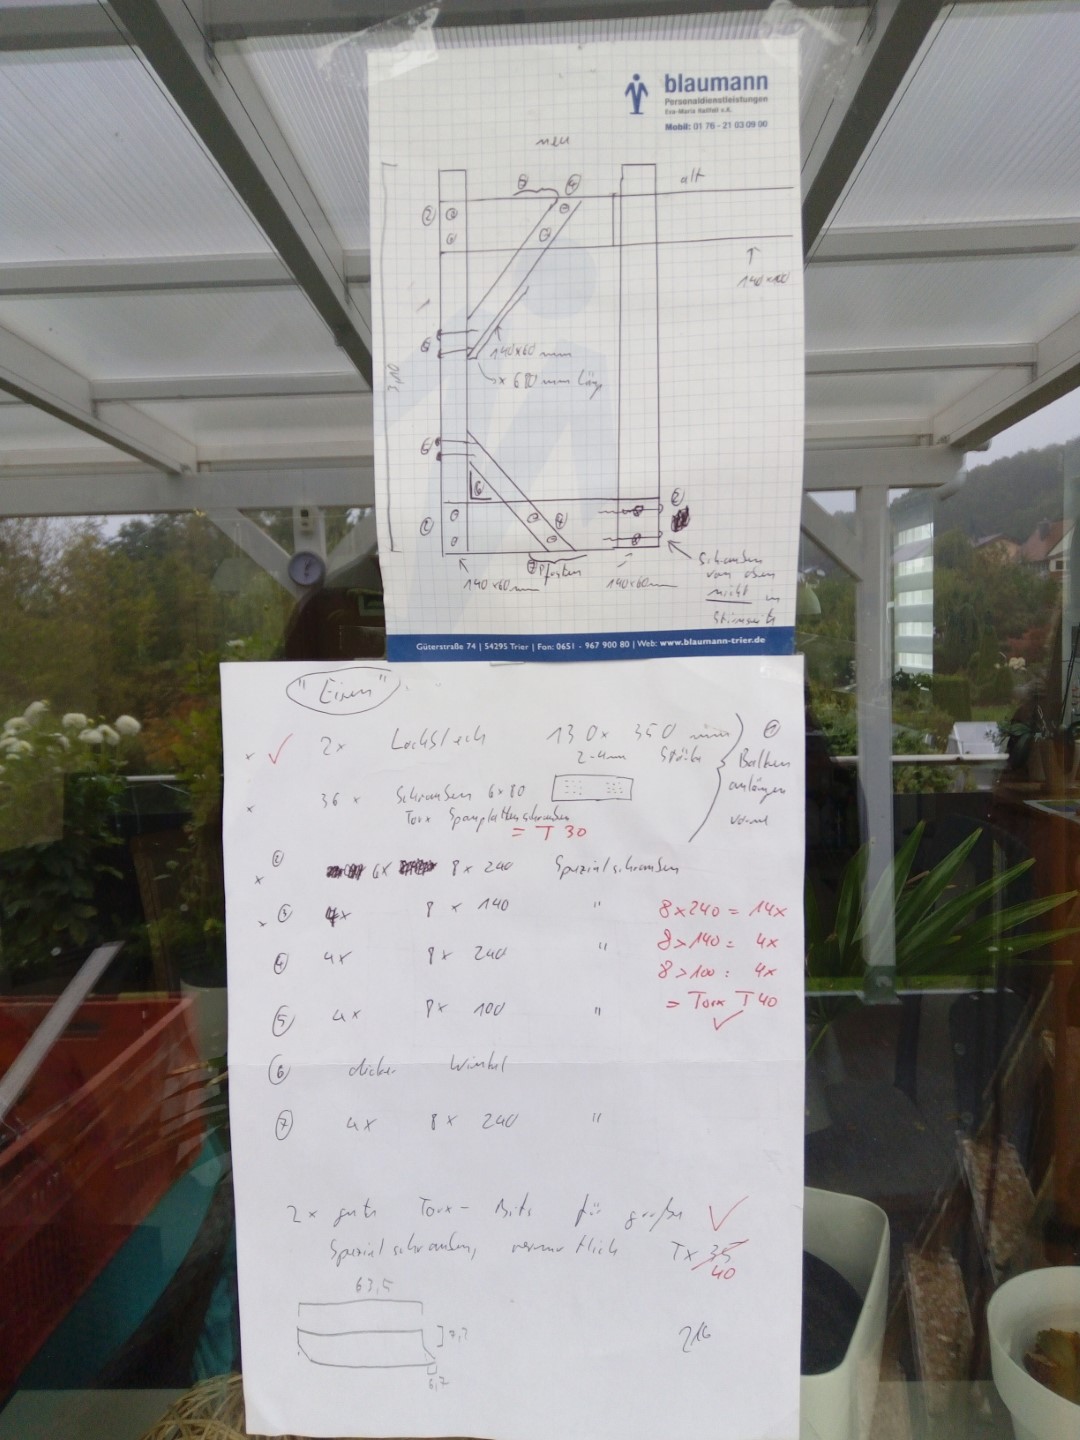 blaumann
Personaldienstleistungen
Eva-Maria Raffel e.K.
Mobil: 01 76 - 21 03 09 00
neu
alt
140x100
3,10
140x60 mm
x 680 mm Länge
Pfosten
140x60mm
140x60mm
Schrauben
von oben
nicht in
Stirnseite
Güterstraße 74 | 54295 Trier | Fon: 0651 - 967 900 80 | Web: www.blaumann-trier.de
"Eisen"
x ✓ 2x Lochblech 130 x 350 mm
2-4mm Stärke
① Balken
anlängen
vorne
x 36 x Schrauben 6x80
Torx Spanplattenschrauben
= T 30
x ② 6x 8 x 240 Spezialschrauben
③ 4x 8 x 140 "
④ 4x 8 x 240 "
⑤ 4x 8 x 100 "
⑥ dicker Winkel
⑦ 4x 8 x 240 "
8x240 = 14x
8x140 = 4x
8x100 = 4x
= Torx T40
✓
2x gute Torx-Bits für große ✓
Spezialschrauben, vermutlich Tx 35
40
63,5
7,7
6,7
216